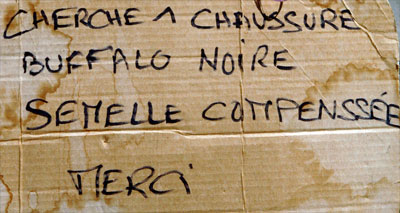 CHERCHE 1 CHAUSSURE
BUFFALO NOIRE
SEMELLE COMPENSSÉE
MERCi